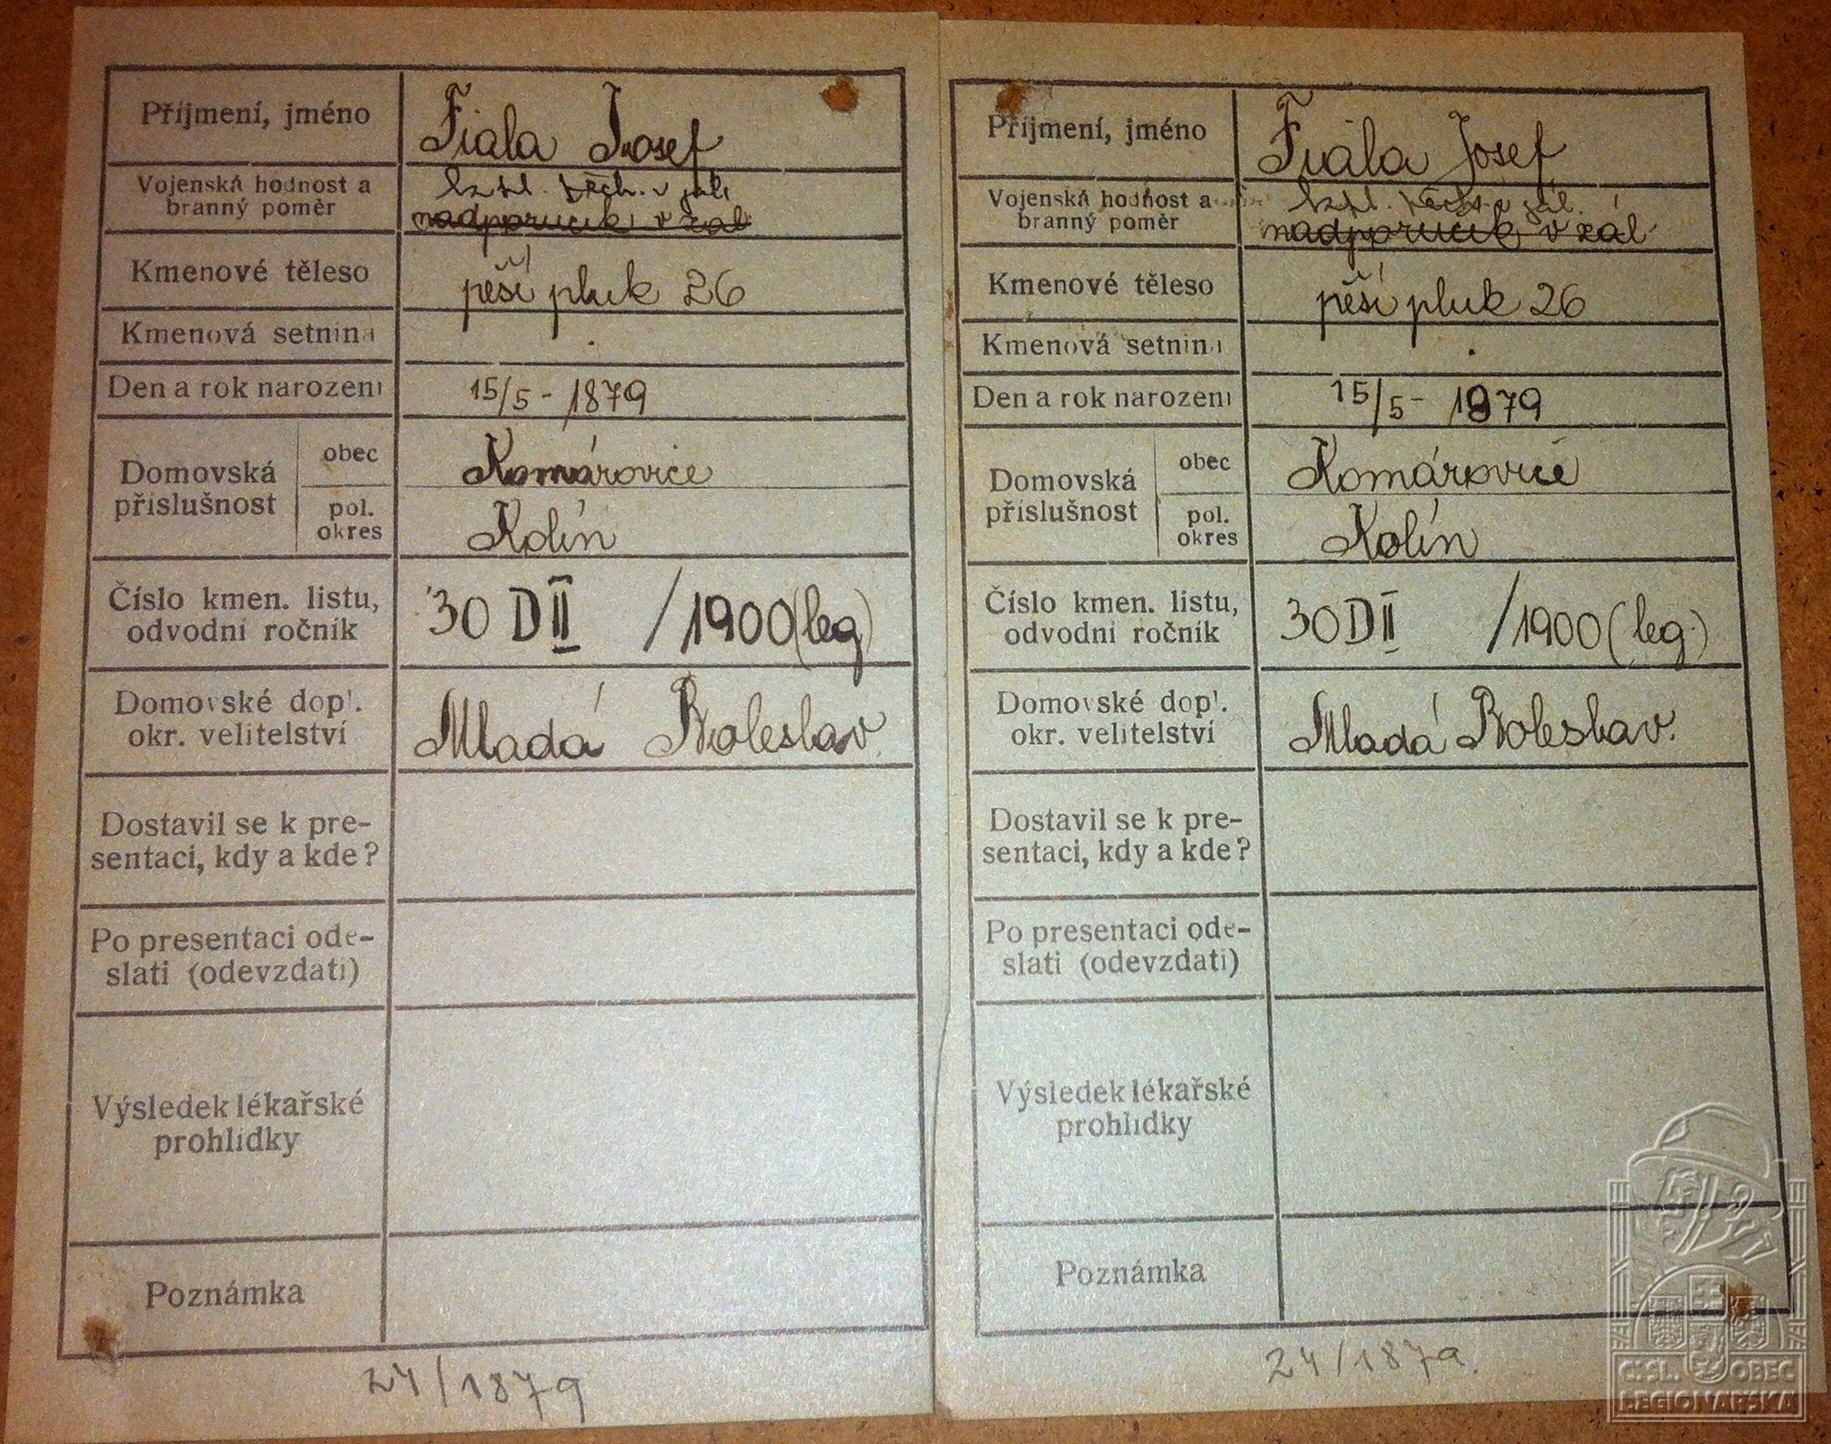 Příjmení, jméno
Fiala Josef
Vojenská hodnost a
branný poměr
nadporučík v zál
Kmenové těleso
pěší pluk 26
Kmenová setnina
Den a rok narození
15/5 - 1879
Domovská
příslušnost
obec
Komárovice
pol.
okres
Kolín
Číslo kmen. listu,
odvodní ročník
30 D II /1900 (leg)
Domovské dopl.
okr. velitelství
Mladá Boleslav.
Dostavil se k pre-
sentaci, kdy a kde?
Po presentaci ode-
slati (odevzdati)
Výsledek lékařské
prohlídky
Poznámka
24/1879
Příjmení, jméno
Fiala Josef
Vojenská hodnost a
branný poměr
nadporučík v zál.
Kmenové těleso
pěší pluk 26
Kmenová setnina
Den a rok narození
15/5 - 1879
Domovská
příslušnost
obec
Komárovice
pol.
okres
Kolín
Číslo kmen. listu,
odvodní ročník
30 D II /1900 (leg.)
Domovské dopl.
okr. velitelství
Mladá Boleslav.
Dostavil se k pre-
sentaci, kdy a kde?
Po presentaci ode-
slati (odevzdati)
Výsledek lékařské
prohlídky
Poznámka
24/1879.
ČSL. OBEC
LEGIONÁŘSKÁ